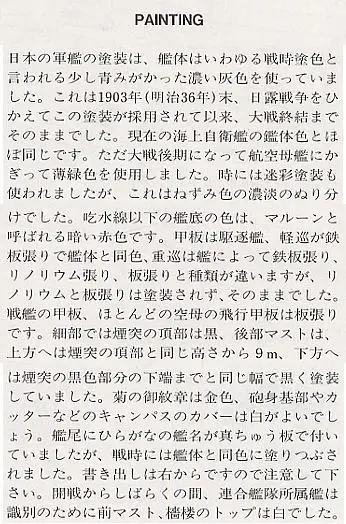 PAINTING
日本の軍艦の塗装は、艦体はいわゆる戦時塗色と
言われる少し青みがかった濃い灰色を使っていま
した。これは1903年(明治36年)末、日露戦争をひ
かえてこの塗装が採用されて以来、大戦終結まで
そのままでした。現在の海上自衛艦の艦体色とほ
ぼ同じです。ただ大戦後期になって航空母艦にか
ぎって薄緑色を使用しました。時には迷彩塗装も
使われましたが、これはねずみ色の濃淡のぬり分
けでした。吃水線以下の艦底の色は、マルーンと
呼ばれる暗い赤色です。甲板は駆逐艦、軽巡が鉄
板張りで艦体と同色、重巡は艦によって鉄板張り、
リノリウム張り、板張りと種類が違いますが、リ
ノリウムと板張りは塗装されず、そのままでした。
戦艦の甲板、ほとんどの空母の飛行甲板は板張り
です。細部では煙突の頂部は黒、後部マストは、
上方へは煙突の頂部と同じ高さから9m、下方へ
は煙突の黒色部分の下端までと同じ幅で黒く塗装
していました。菊の御紋章は金色、砲身基部やカ
ッターなどのキャンバスのカバーは白がよいでし
ょう。艦尾にひらがなの艦名が真ちゅう板で付い
ていましたが、戦時には艦体と同色に塗りつぶさ
れました。書き出しは右からですので注意して下
さい。開戦からしばらくの間、連合艦隊所属艦は
識別のために前マスト、檣楼のトップは白でした。